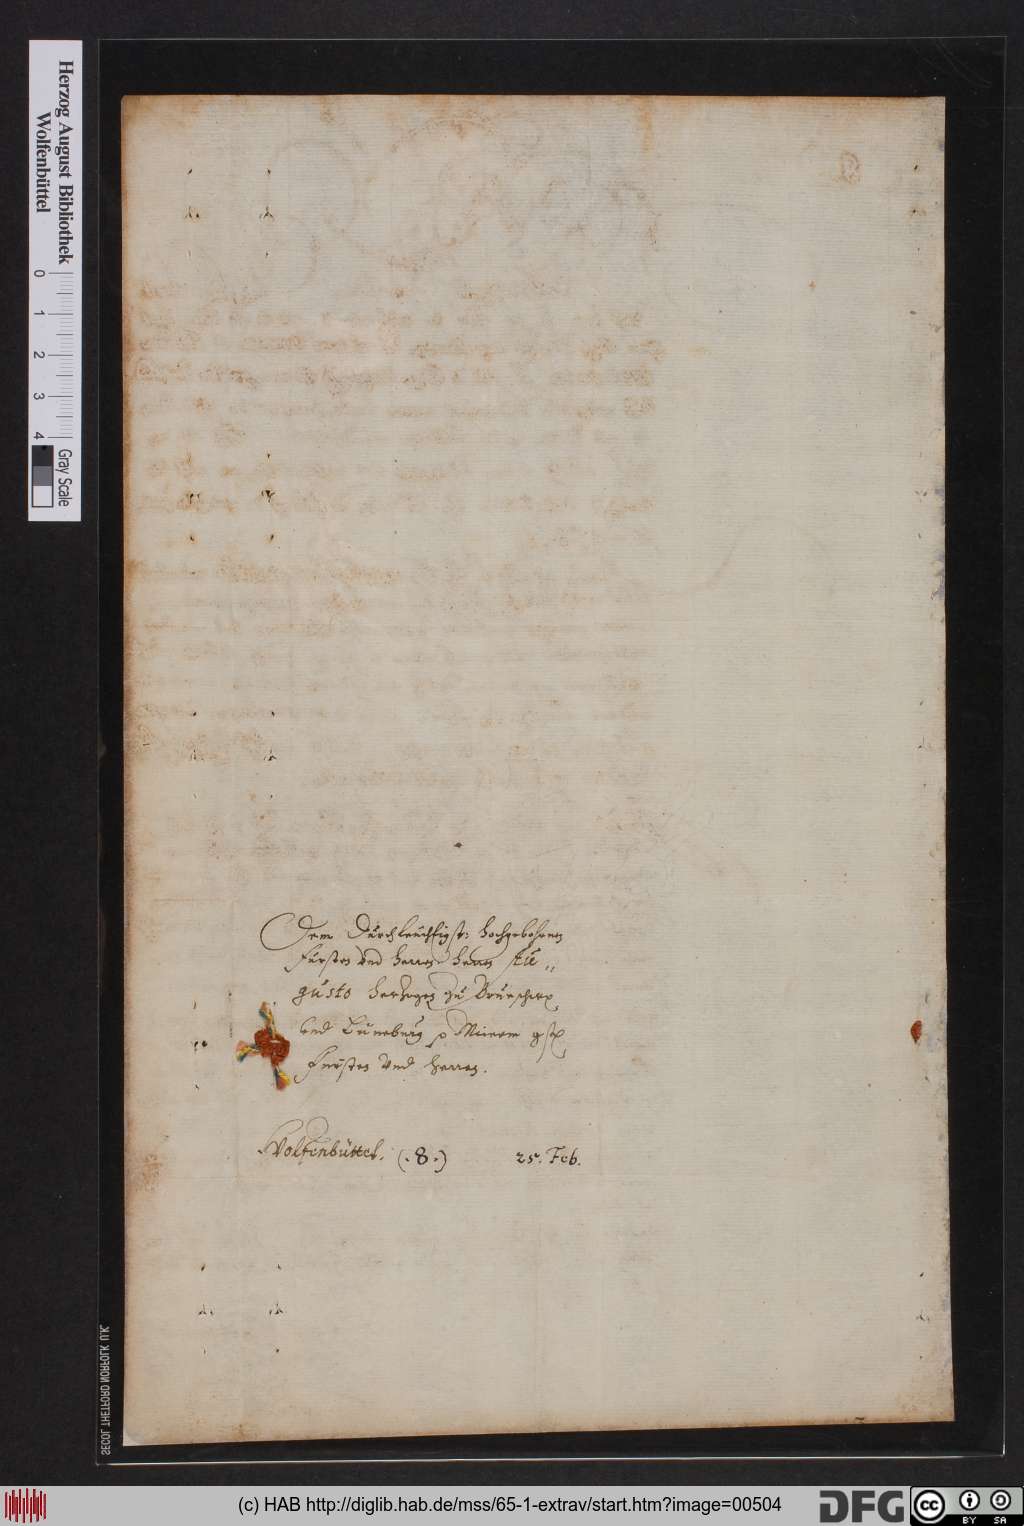 Herzog August Bibliothek
Wolfenbüttel
0 1 2 3 4
Gray Scale
Dem Durchleuchtigst: hochgebohrnen
Fürsten Vnd Herren Herrn Au=
gusto Herzogen zu Brunschw.
vnd Lüneburg p Meinem gst.
Fürsten Vnd Herren.
Wolfenbüttel. (.8.) 25. Feb.
SECOL THETFORD NORFOLK U.K.
(c) HAB http://diglib.hab.de/mss/65-1-extrav/start.htm?image=00504
DFG
cc
BY SA